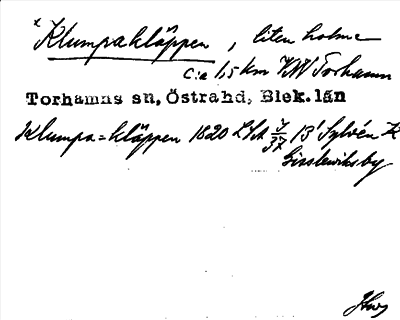 Klumpakläppen, liten holme
c:a 1,5 km VNV Torhamn
Torhamns sn, Östrahd, Blek. län
Klumpa=kläppen 1820 LSA 7/37 13' Sylvén K
Gissleviksby